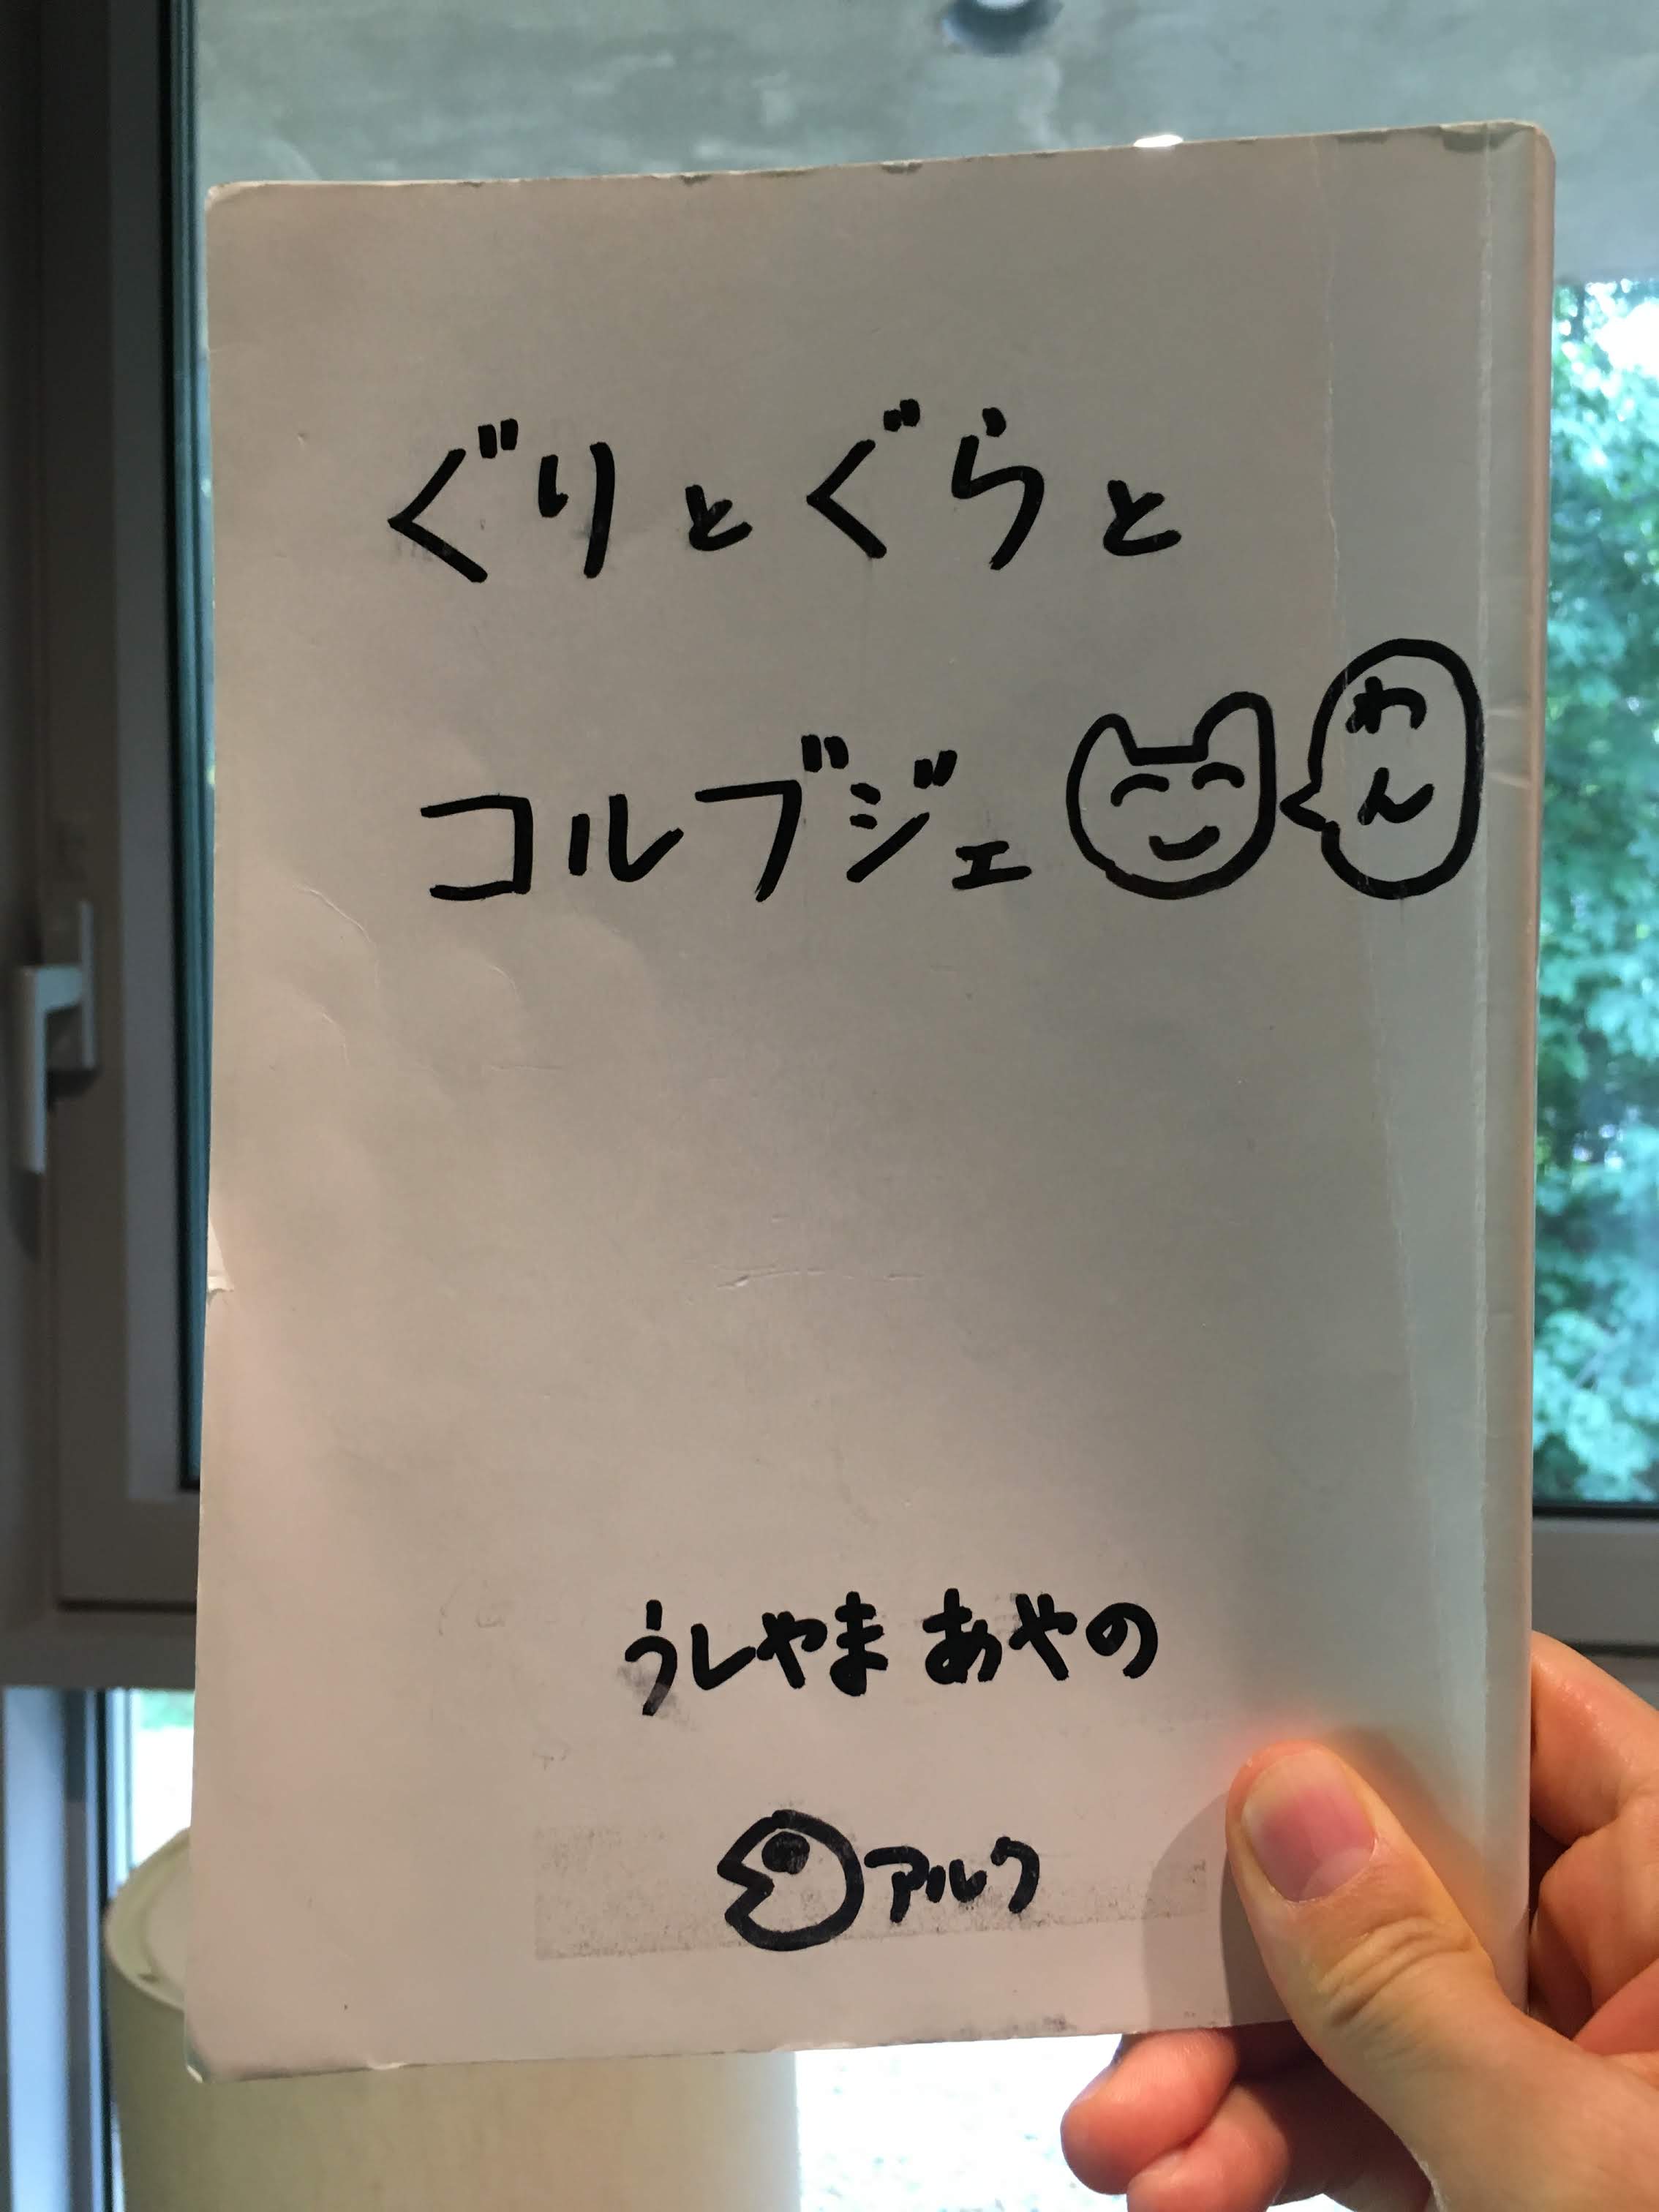 ぐりとぐらと
コルブジェ
わん
うしやま あやの
アルク